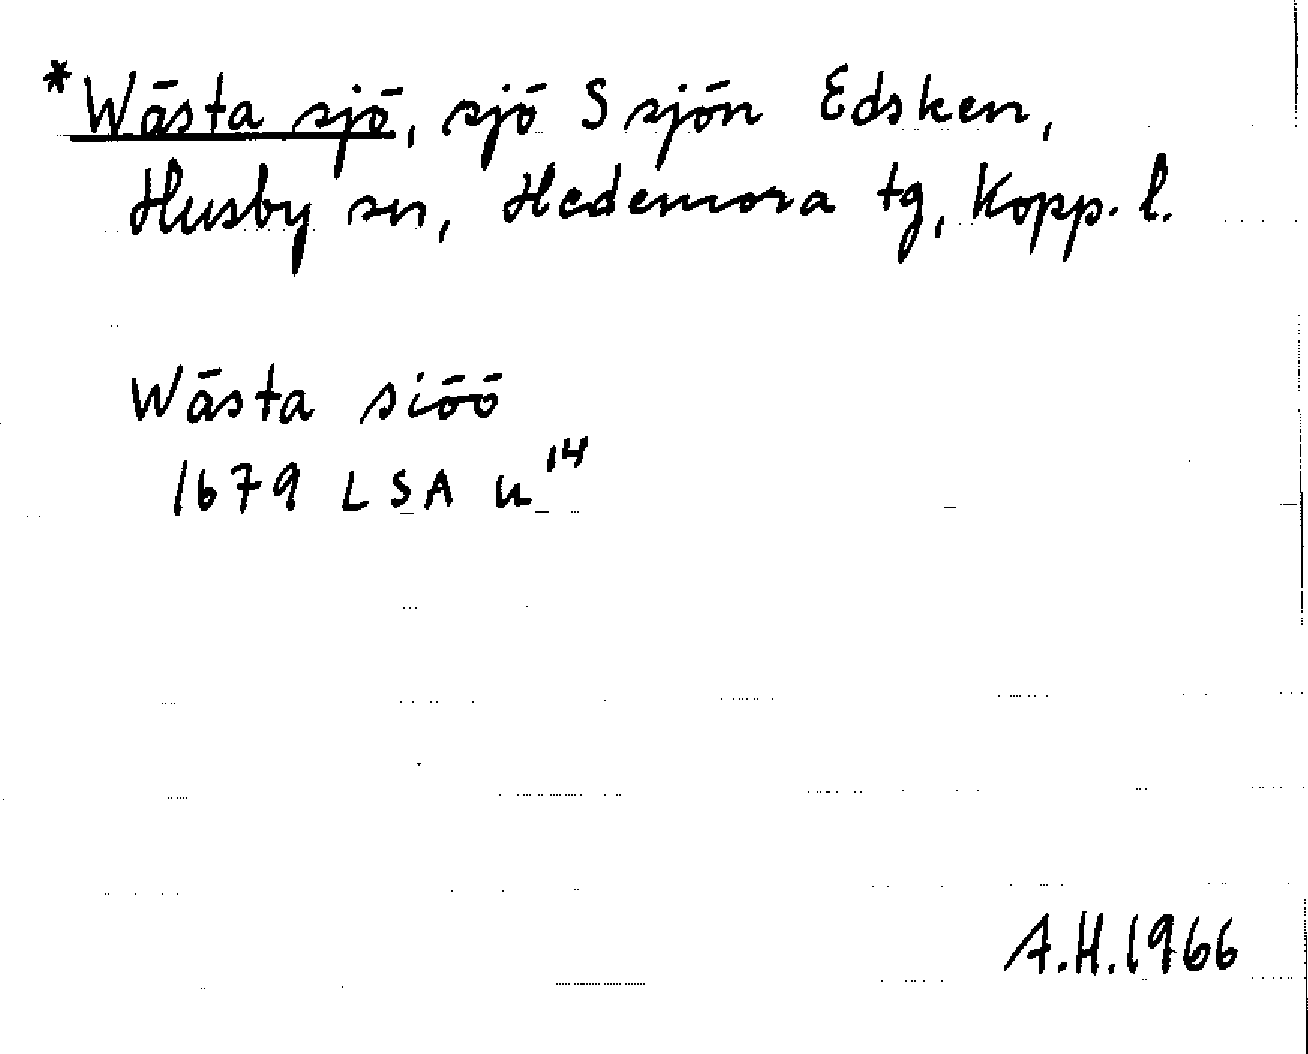 *Wästa sjö, sjö S sjön Edsken,
Husby sn, Hedemora tg, Kopp. l.
Wästa siöö
1679 LSA U 14
A.H. 1966